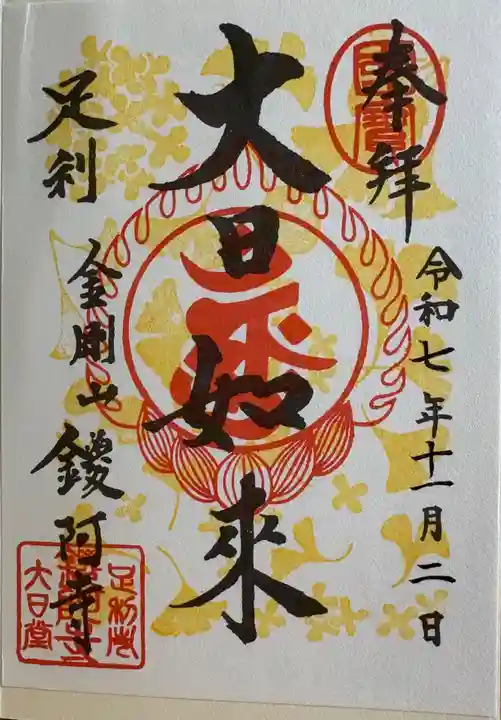 奉拝
令和七年十一月二日
大日如来
足利
金剛山 鑁阿寺
国宝
大日堂